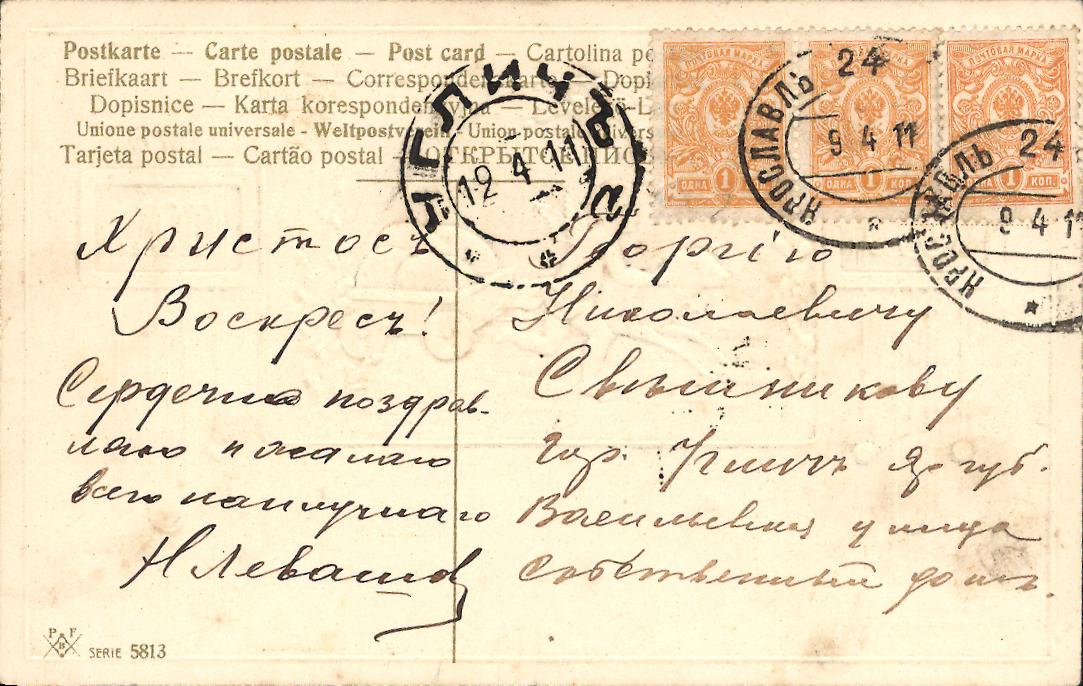 Postkarte — Carte postale — Post card — Cartolina po
Briefkaart — Brefkort — Correspondenzkarte — Dopi
Dopisnice — Karta korespondencyjna — Levelező-L
Unione postale universale - Weltpostverein - Union postale univers
Tarjeta postal — Cartão postal — ОТКРЫТОЕ ПИСЬ
УГЛИЧЪ
12 4 11
а
ПОЧТОВАЯ МАРКА
ОДНА 1 КОП.
ПОЧТОВАЯ МАРКА
ОДНА 1 КОП.
ПОЧТОВАЯ МАРКА
ОДНА 1 КОП.
ЯРОСЛАВЛЬ
24
9 4 11
ЯРОСЛАВЛЬ
24
9 4 11
Христосъ
Воскресъ!
Сердечно поздрав-
ляю и желаю
всего наилучшаго
Н Левашов
Георгію
Николаевичу
Свѣшникову
Гор. Угличъ Яр губ.
Васильевская улица
собственный домъ.
P F
B
SERIE 5813